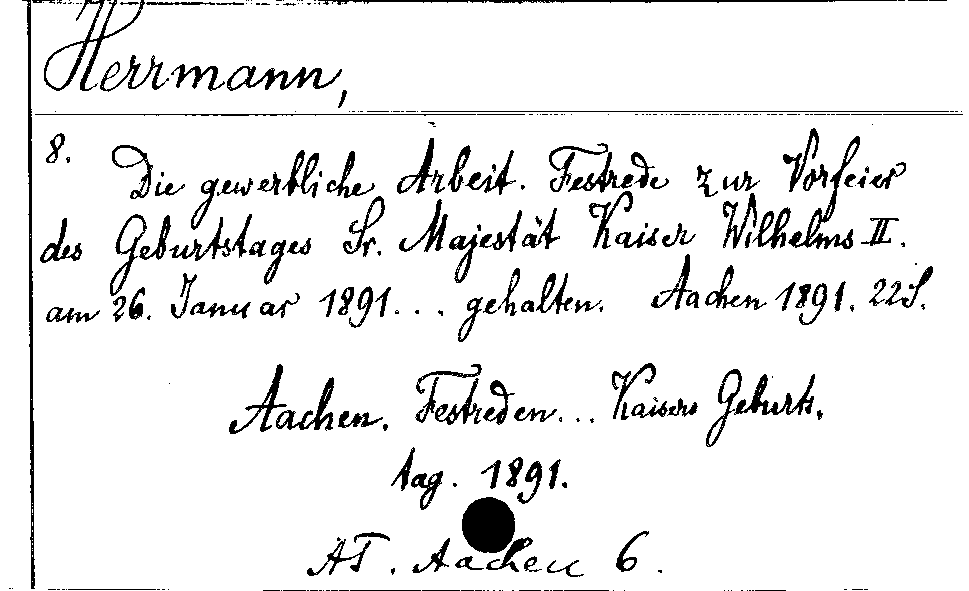 Herrmann,
8. Die gewerbliche Arbeit. Festrede zur Vorfeier
des Geburtstages Sr. Majestät Kaiser Wilhelms II.
am 26. Januar 1891... gehalten. Aachen 1891. 22 S.
Aachen. Festreden... Kaisers Geburts,
tag. 1891.
AT. Aachen 6.